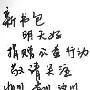 新书包
明天好
捐赠公益行动
敬请关注